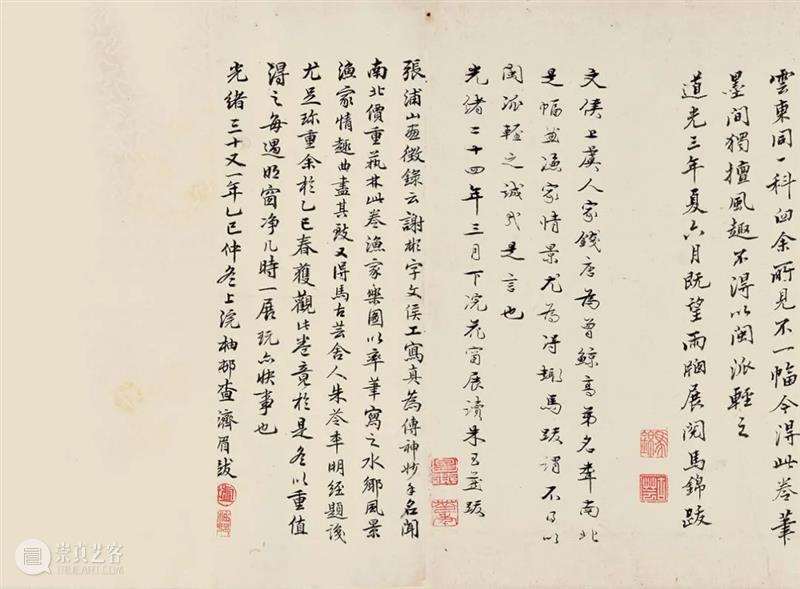 雲東同一科臼余所見不一幅今得此卷筆
墨間獨擅風趣不得以閩派輕之
道光三年夏六月既望雨牕展閱馬錦跋
文侯上虞人家錢唐為曾鯨高弟名牽南北
是幅畫漁家情景尤為得趣馬跋謂不可以
閩派輕之誠哉是言也
光緒二十四年三月下浣花窗展讀朱 跋
張浦山畫徵錄云謝彬字文侯工寫真為傳神妙手名聞
南北價重藝林此卷漁家樂圖以率筆寫之水鄉風景
漁家情趣曲盡其致又得馬古芸舍人朱苓年明經題後
尤足珍重余於乙巳春獲觀此卷竟於是冬以重值
得之每遇明窗净几時一展玩亦快事也
光緒三十又一年乙巳仲冬上浣柚邨查濟眉跋
崇真艺客
WWW.TRUEART.COM